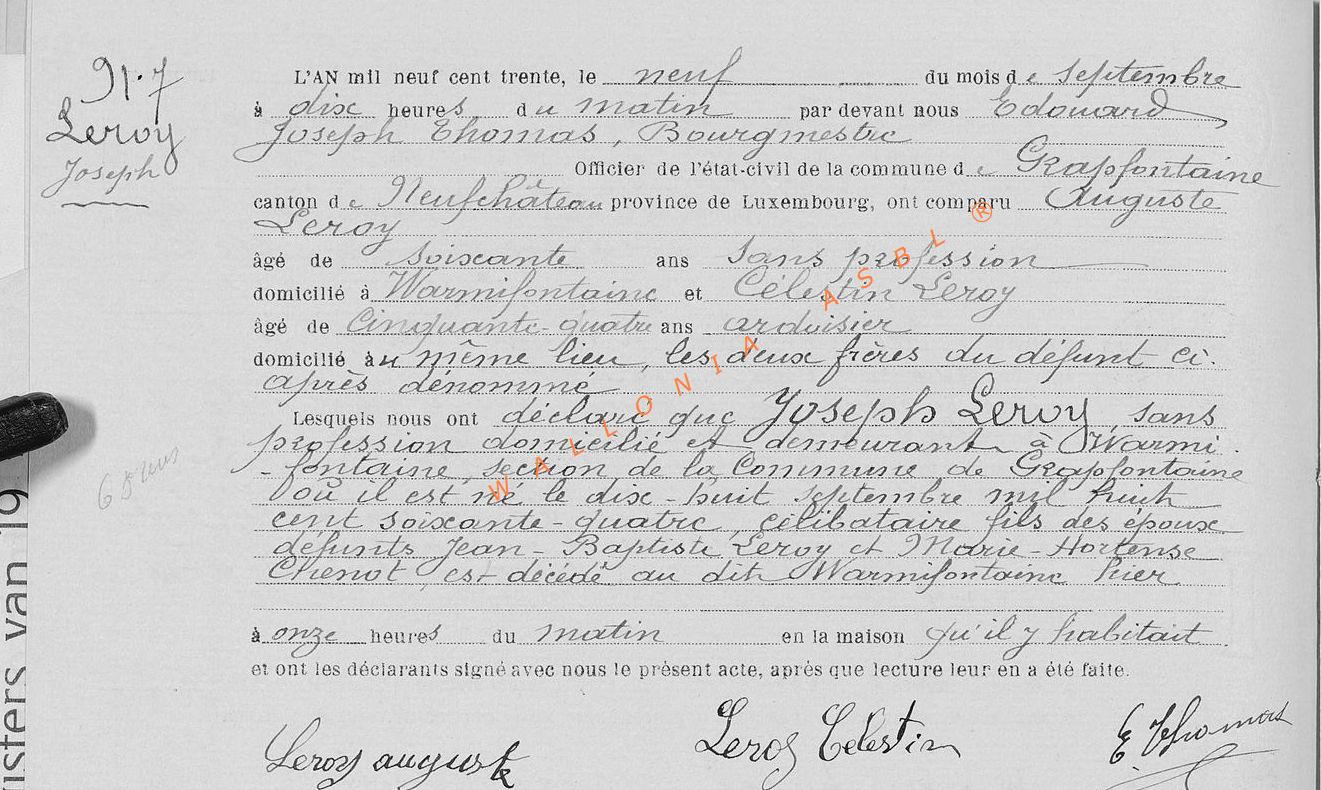 N: 7
Leroy
Joseph
L'AN mil neuf cent trente, le neuf du mois de septembre
à dix heures du matin par devant nous Edouard
Joseph Thomas, Bourgmestre
Officier de l'état-civil de la commune de Grapfontaine
canton de Neufchâteau province de Luxembourg, ont comparu Auguste
Leroy
âgé de soixante ans sans profession
domicilié à Warmifontaine et Célestin Leroy
âgé de Cinquante-quatre ans ardoisier
domicilié au même lieu, les deux frères du défunt ci-
après dénommé
Lesquels nous ont déclaré que Joseph Leroy, sans
profession domicilié et demeurant à Warmi
-fontaine, section de la Commune de Grapfontaine
où il est né le dix-huit septembre mil huit
cent soixante-quatre, célibataire fils des époux
défunts Jean-Baptiste Leroy et Marie-Hortense
Chenot, est décédé au dit Warmifontaine hier
à onze heures du matin en la maison qu'il y habitait
et ont les déclarants signé avec nous le présent acte, après que lecture leur en a été faite.
Leroy auguste Leroy Célestin E. Thomas
65 ans
WALLONIA ASBL ®
isters van 19